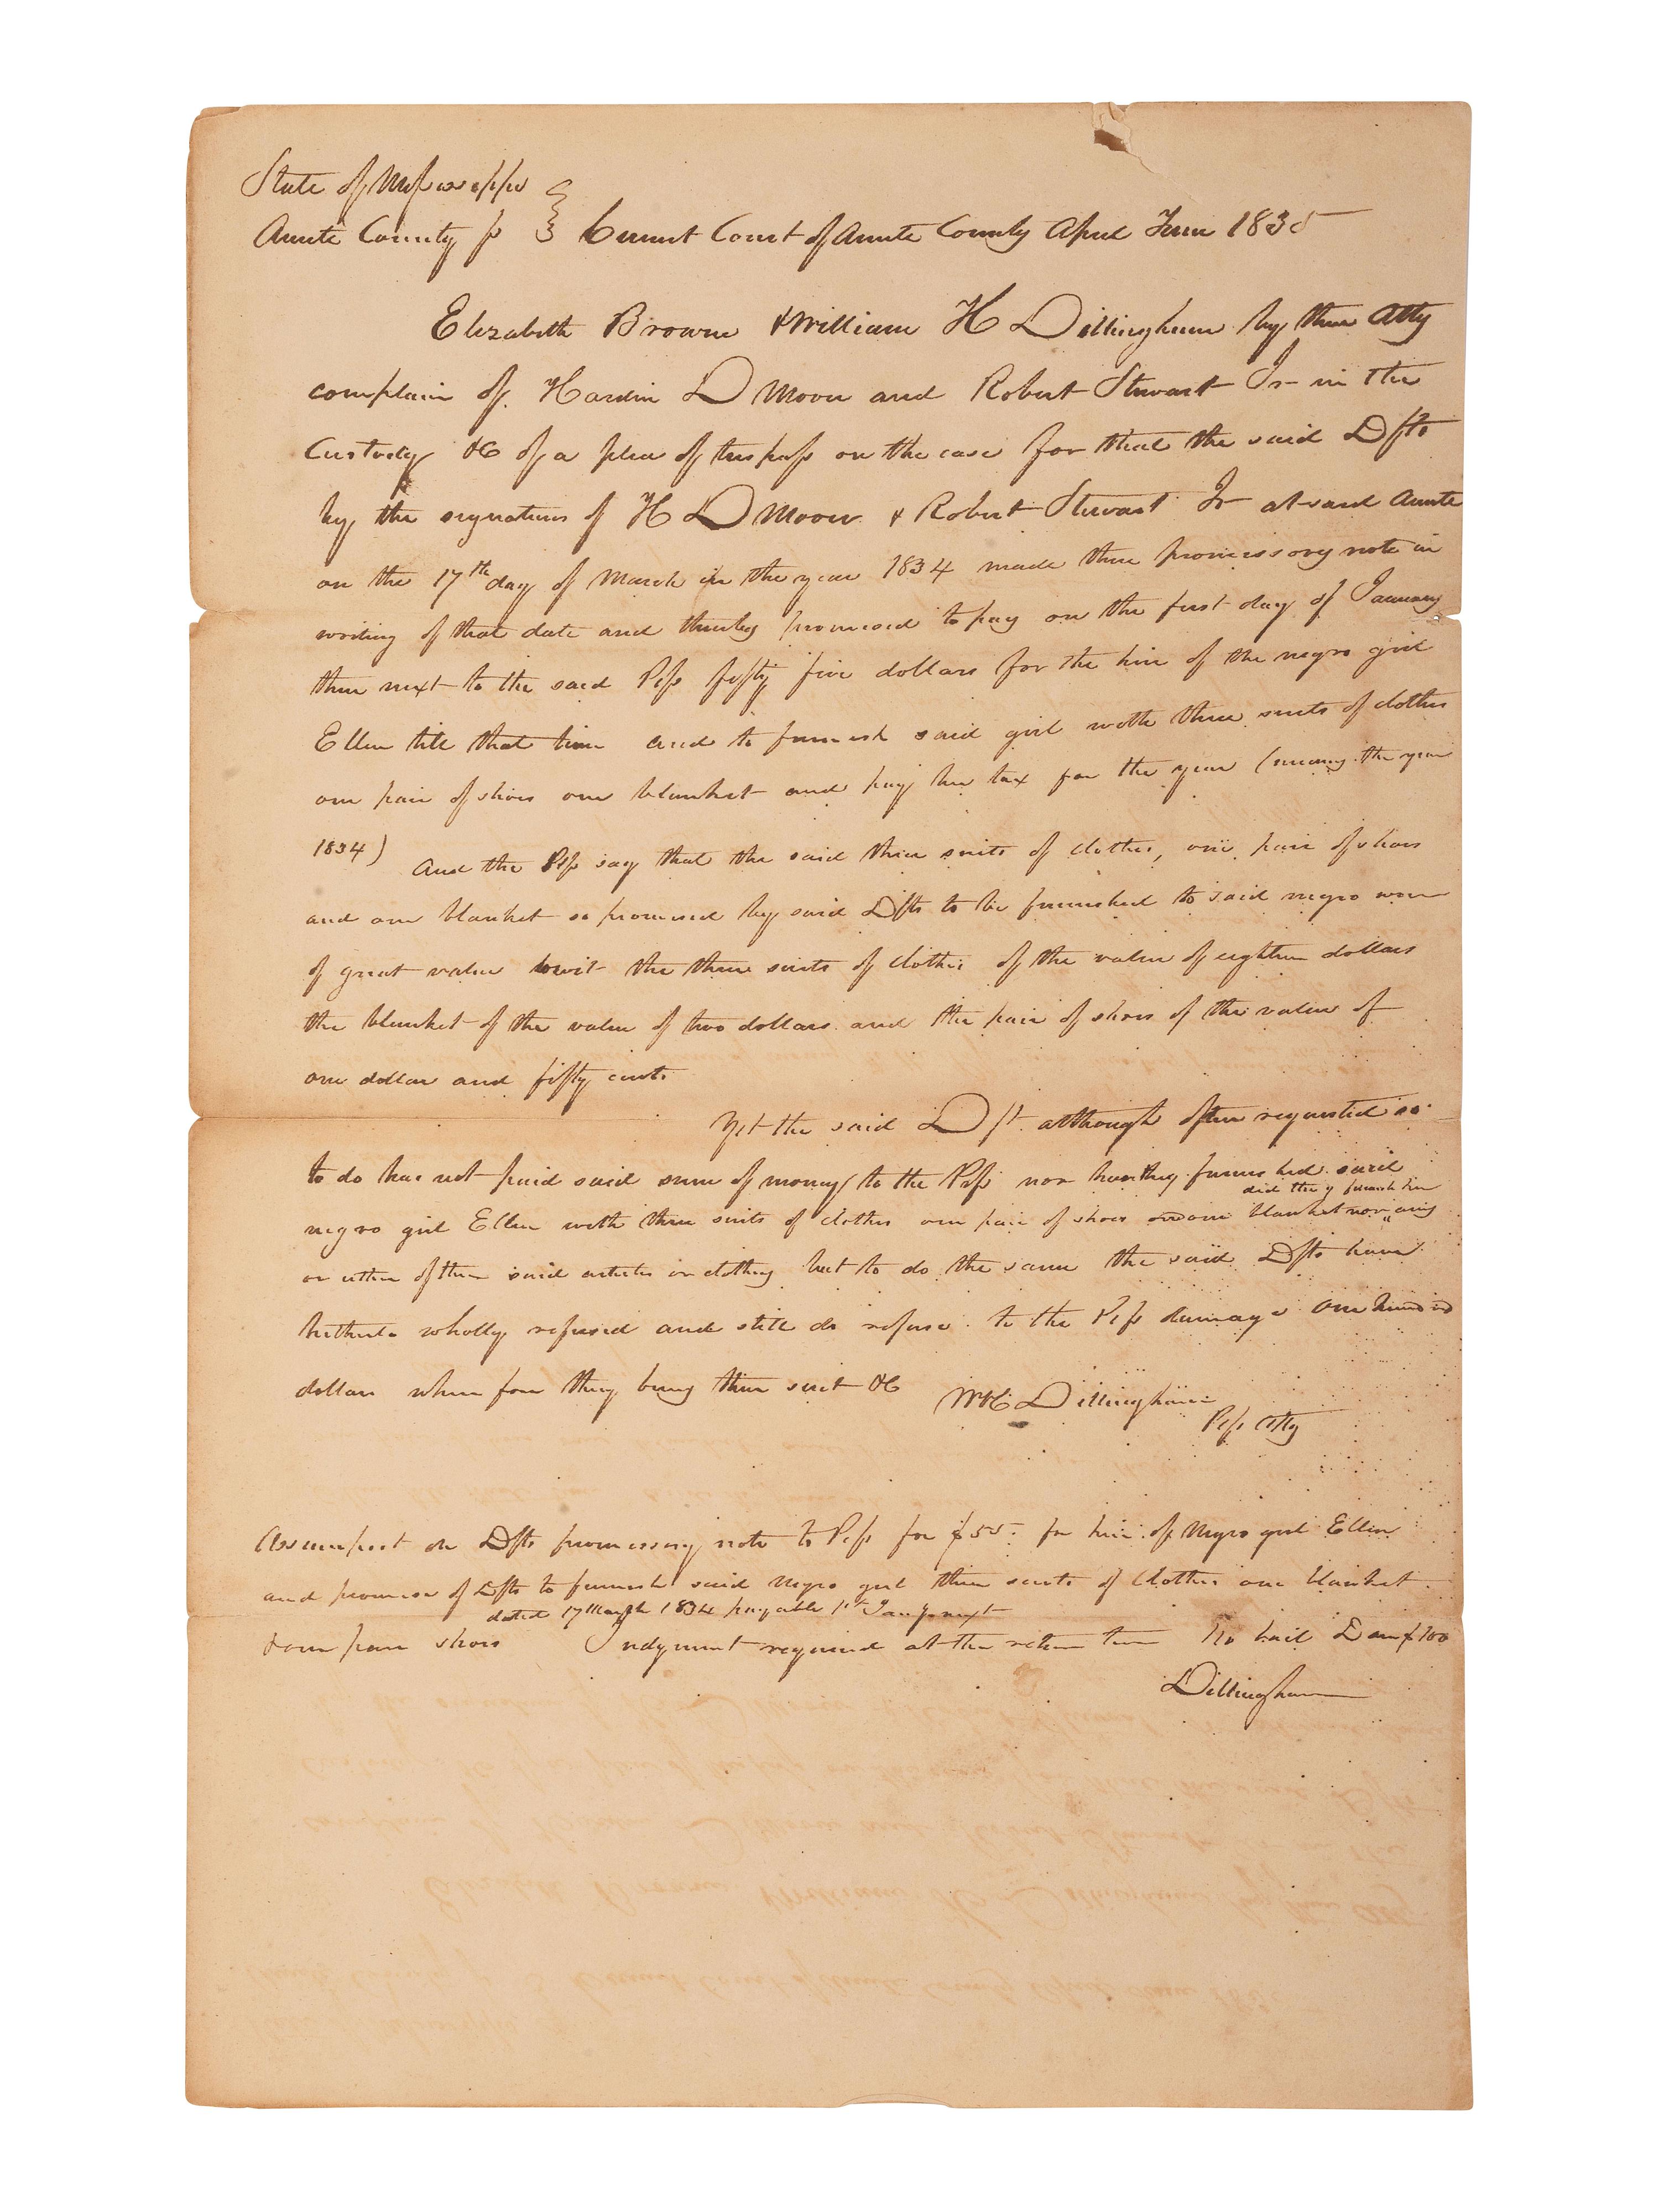 State of Mississippi
Amite County ss } Circuit Court of Amite County April Term 1835
Elizabeth Browne & William H Dillingham by their Atty
complain of Hardin D Moore and Robert Stewart Jr in the
Custody &C of a plea of trespass on the case for that the said Dfts
by the signatures of H D Moore & Robert Stewart Jr at said Amite
on the 17th day of March in the year 1834 made their promissory note in
writing of that date and thereby promised to pay on the first day of January
then next to the said Plfs fifty five dollars for the hire of the negro girl
Ellen till that time and to furnish said girl with three suits of clothes
one pair of shoes one blanket and pay her tax for the year (meaning the year
1834) And the Plfs say that the said three suits of clothes, one pair of shoes
and one blanket so promised by said Dfts to be furnished to said negro were
of great value towit the three suits of clothes of the value of eighteen dollars
the blanket of the value of two dollars and the pair of shoes of the value of
one dollar and fifty cents
Yet the said Dft although often requested so
to do has not paid said sum of money to the Plfs nor have they furnished said
did they furnish her
negro girl Ellen with three suits of clothes one pair of shoes one blanket nor any
or either of them said articles or clothing but to do the same the said Dfts have
hitherto wholly refused and still do refuse to the Plfs damage One hundred
dollars where fore they bring their suit &C WH Dillingham
Plfs Atty
Assumpsit on Dfts promissory note to Plfs for $55. for hire of Negro girl Ellen
and promise of Dfts to furnish said Negro girl three suits of Clothes one blanket
dated 17 March 1834 payable 1st Jany next
& one pair shoes Judgment required at the return term No bail Dam $100
Dillingham